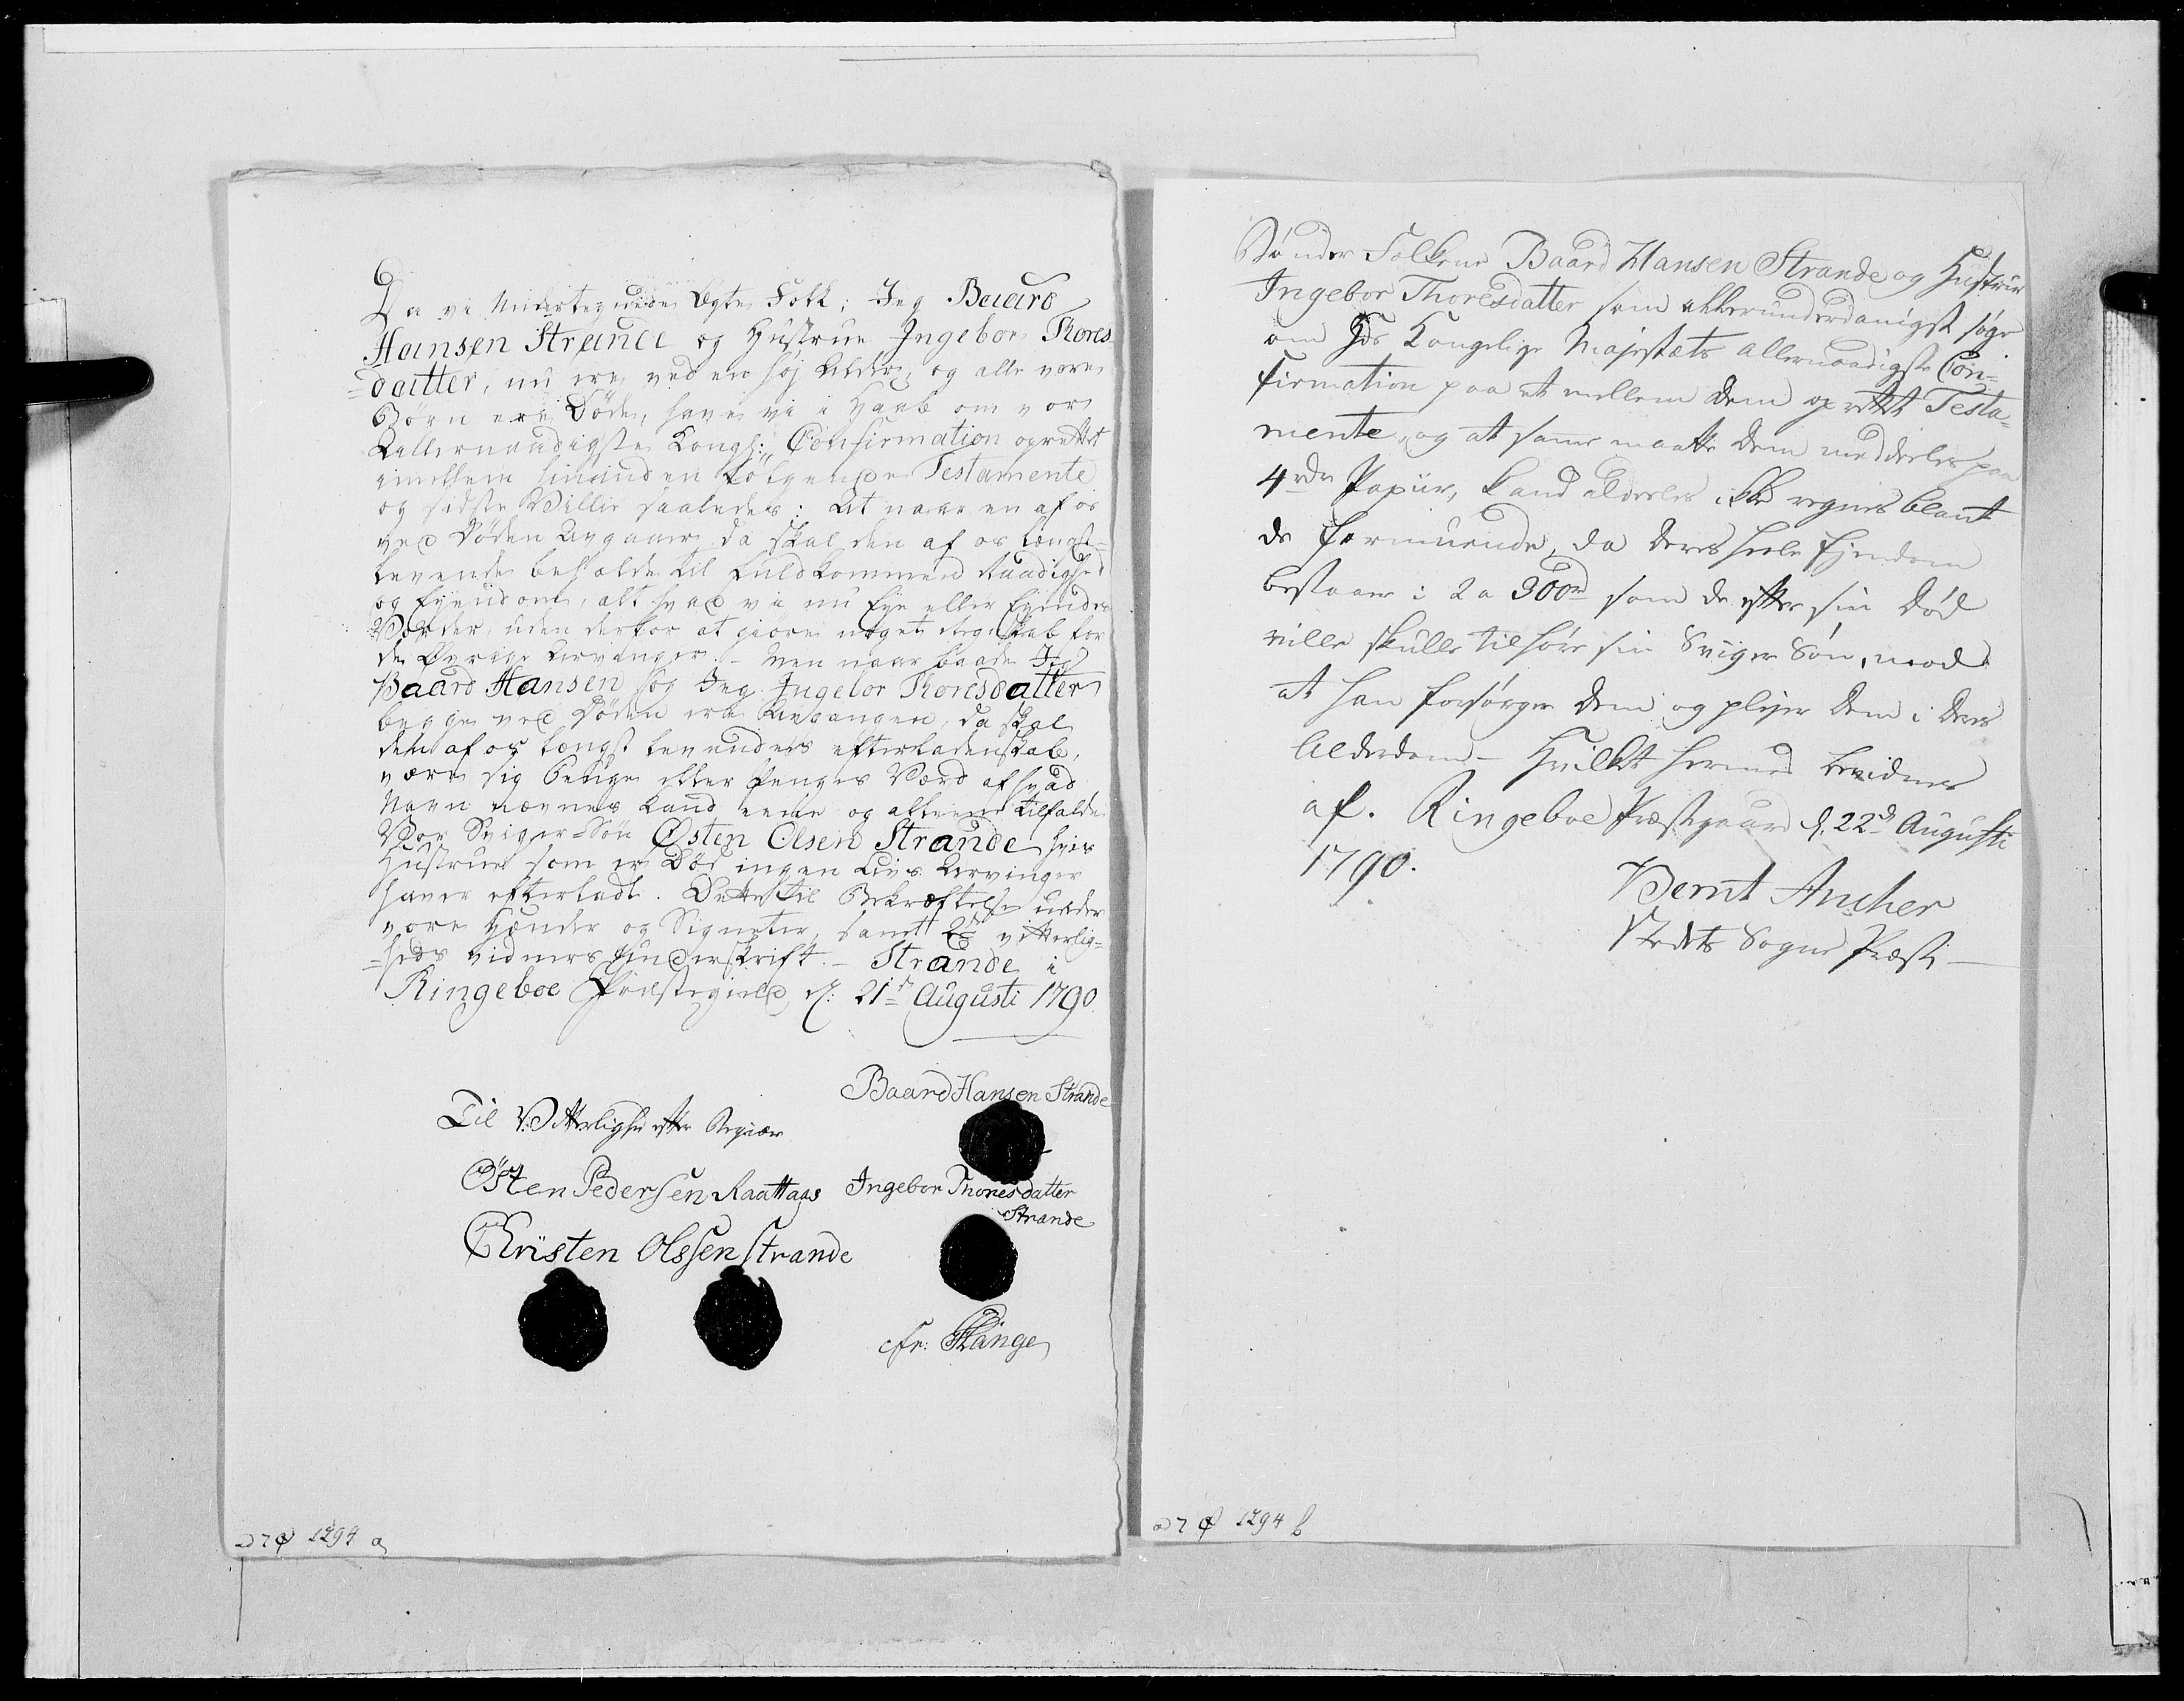 Da vi undertegnede Egte Folk; Jeg Baard
Hansen Strande og Hustrue Ingebor Thores
=datter, nu ere ved en høj Alder, og alle vore
Børn ere Døde, have vi i Haab om vor
Allernaadigste Kongl: Confirmation oprettet
imellem hinanden følgende Testamente
og sidste Villie saaledes: At naar en af os
ved Døden Avgaaer, da skal den af os længst-
levende beholde til fuldkommen Raadighed
og Eyendom, alt hvad vi nu Eye eller Eyendes
Vorder, uden derfor at giøre noget Regnskab for
de Øvrige Arvinger. - Men naar baade Jeg
Baard Hansen og Jeg Ingebor Thoresdatter
begge ved Døden ere Avgangen, da skal
den af os længst levendes efterladenskab,
være sig Penge eller Penges Værd af hvad
Navn nævnes kand eene og alleene tilfalde
Vor Sviger-Søn Østen Olsen Strande hvis
Hustrue som er Død ingen Livs Arvinger
haver efterladt. Dette til Bekræftelse under
vore Hænder og Signeter, samt 2de vitterlig=
=heds vidners Underskrift. - Strande i
Ringeboe Præstegield, d: 21de Augusti 1790.
Baard Hansen Strande
Til Vitterlighed efter Begiær
Østen Pedersen Raattaas
Ingebor Thoresdatter
Strande
Christen Olssen Strande
cfr: Flange
ad 7 1294 a
Bønder Folkene Baard Hansen Strande og Hustrue
Ingebor Thoresdatter som allerunderdanigst søge
om Hds Kongelige Majestæts allernaadigste Con-
firmation paa et mellem dem oprettet Testa-
mente, og at samme maatte dem meddeles paa
4rdr Papiir, kand aldeeles ikke regnes blant
de formuende, da deres heele Ejendom
bestaaer i 2 a 300rd som de efter sin Død
ville skulle tilhøre sin Sviger Søn, mod
at han forsørger dem og plejer dem i deres
Alderdom - Hvilket hermed bevidnes
af. Ringeboe Præstegaard d. 22de Augusti
1790.
Bernt Ancher
Stedets Sogne Præst
ad 7 1294 b